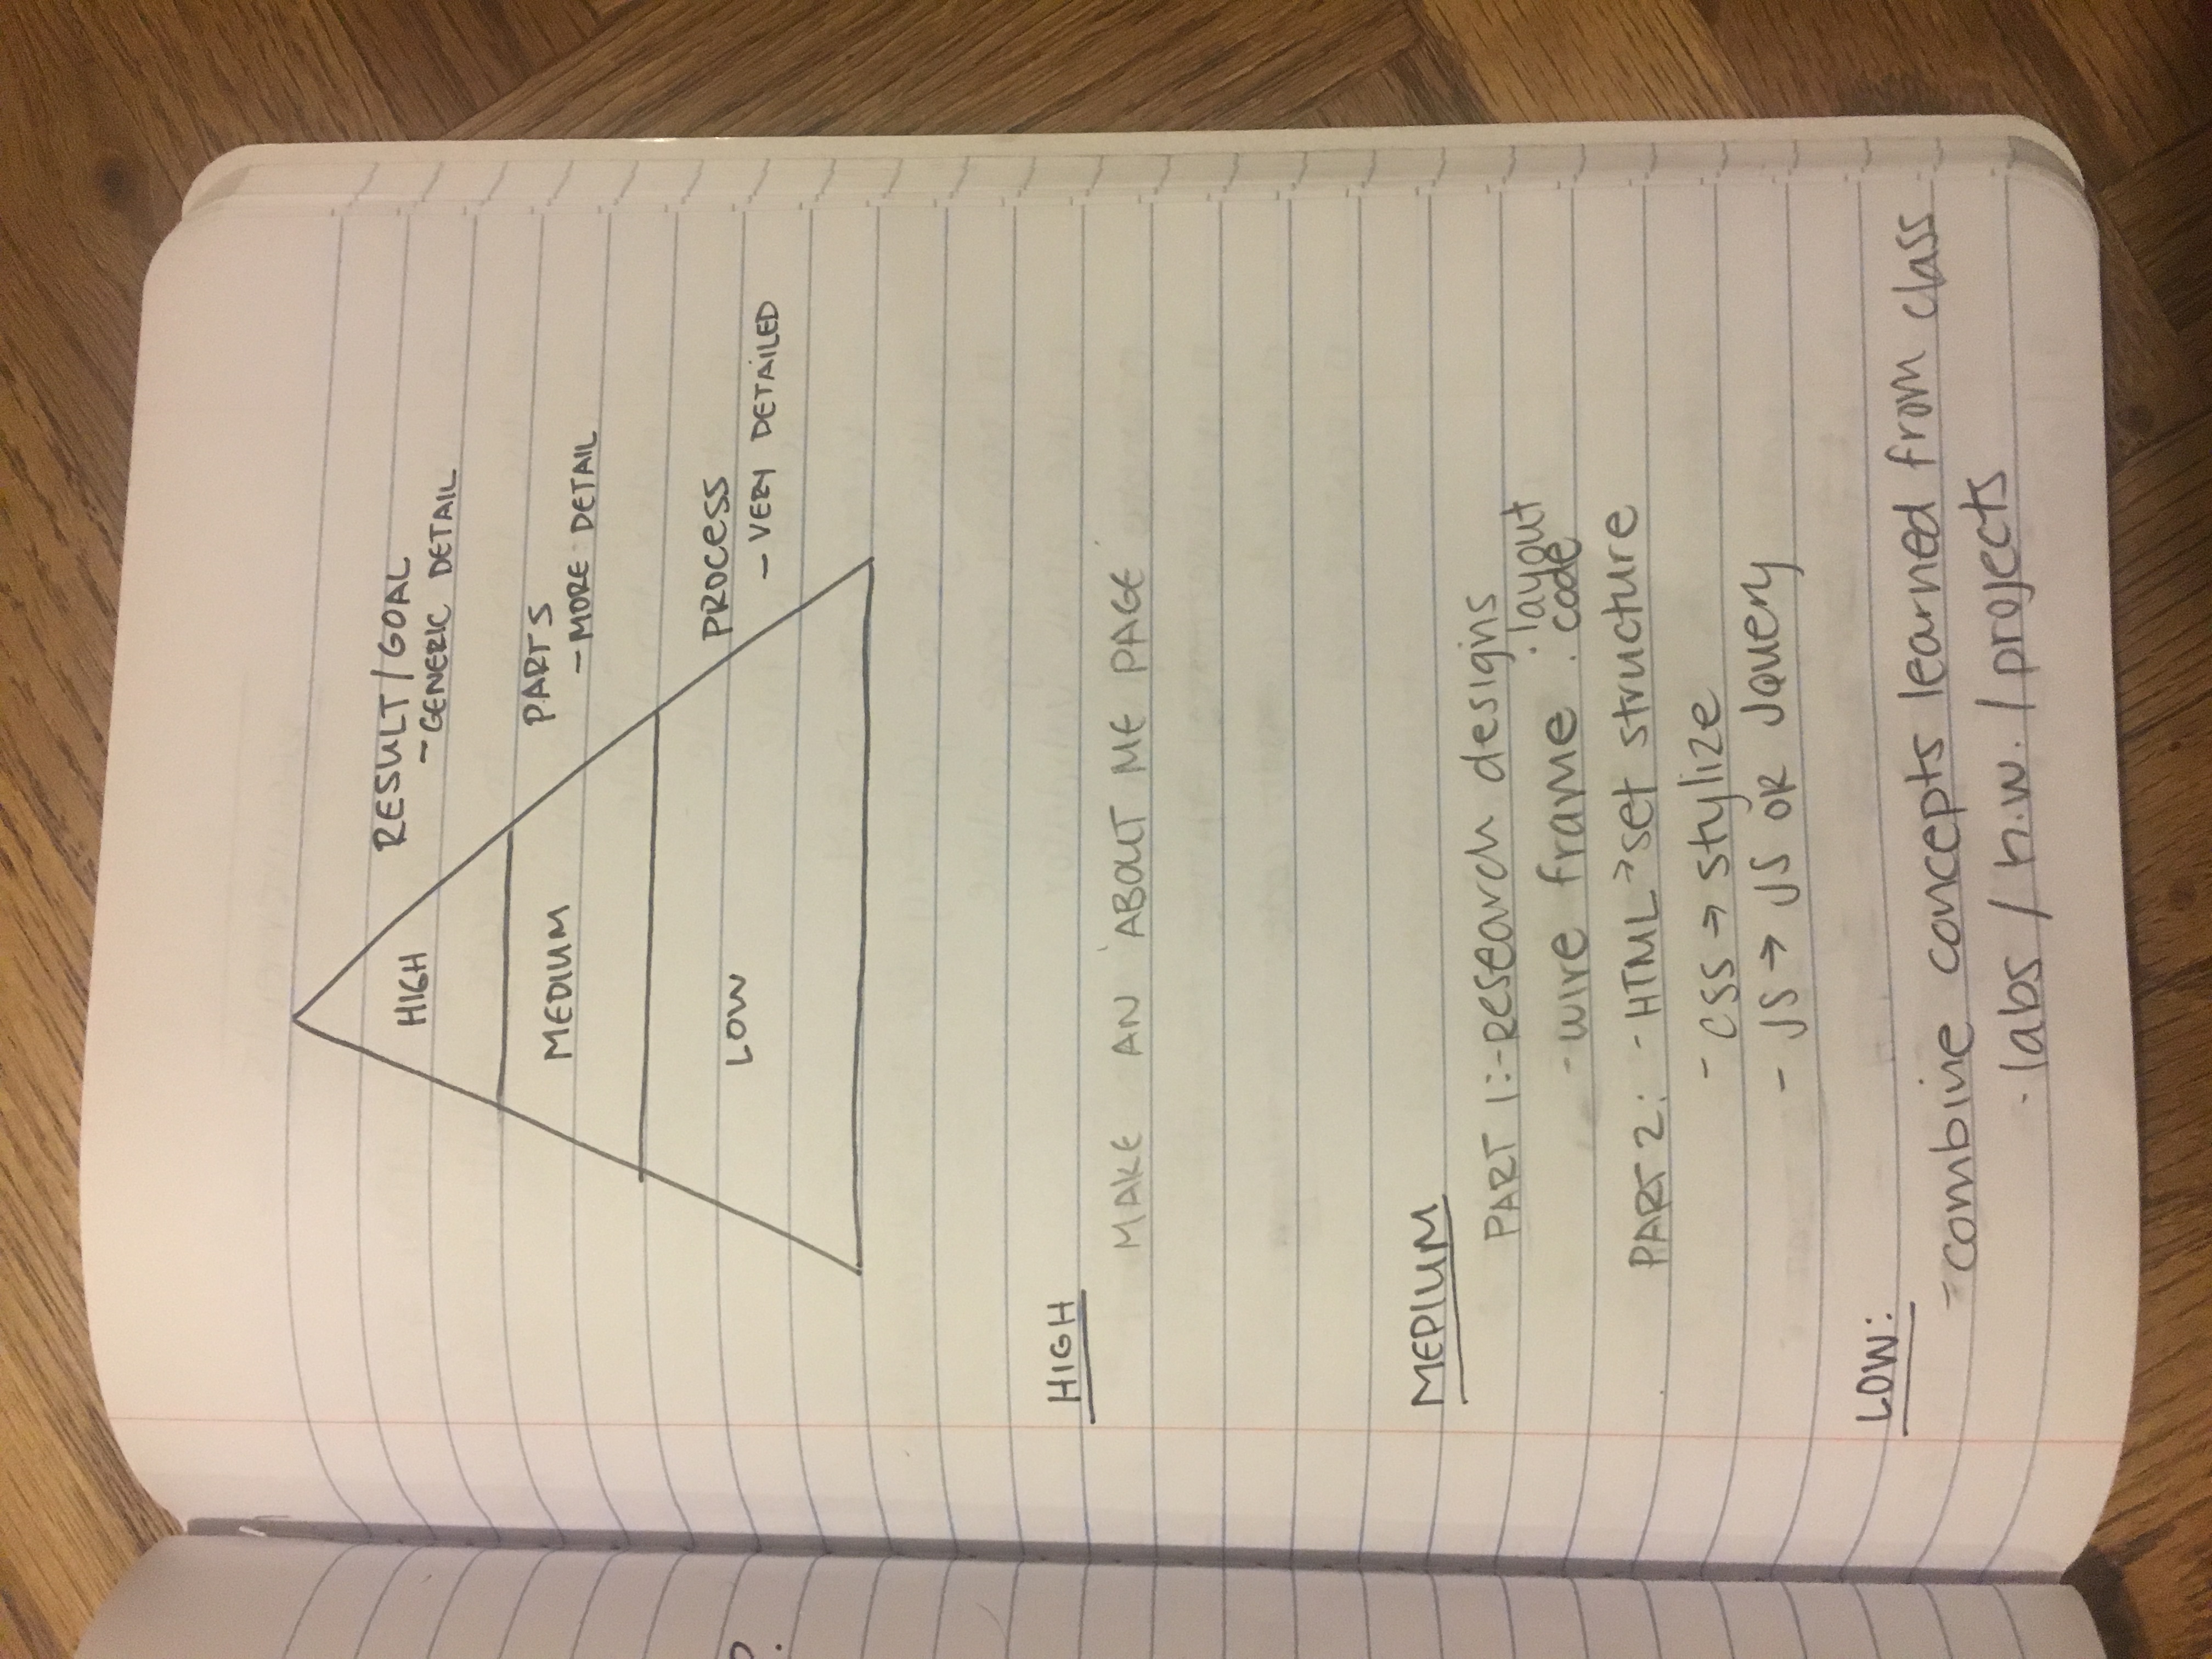 HIGH
RESULT/GOAL
- GENERIC DETAIL
MEDIUM
PARTS
- MORE DETAIL
LOW
PROCESS
- VERY DETAILED
HIGH
MAKE AN 'ABOUT ME PAGE'
MEDIUM
PART 1: - Research designs
- wire frame . layout
. code
PART 2: - HTML → set structure
- CSS → stylize
- JS → JS OR JQuery
LOW:
- combine concepts learned from class
. labs / h.w. / projects